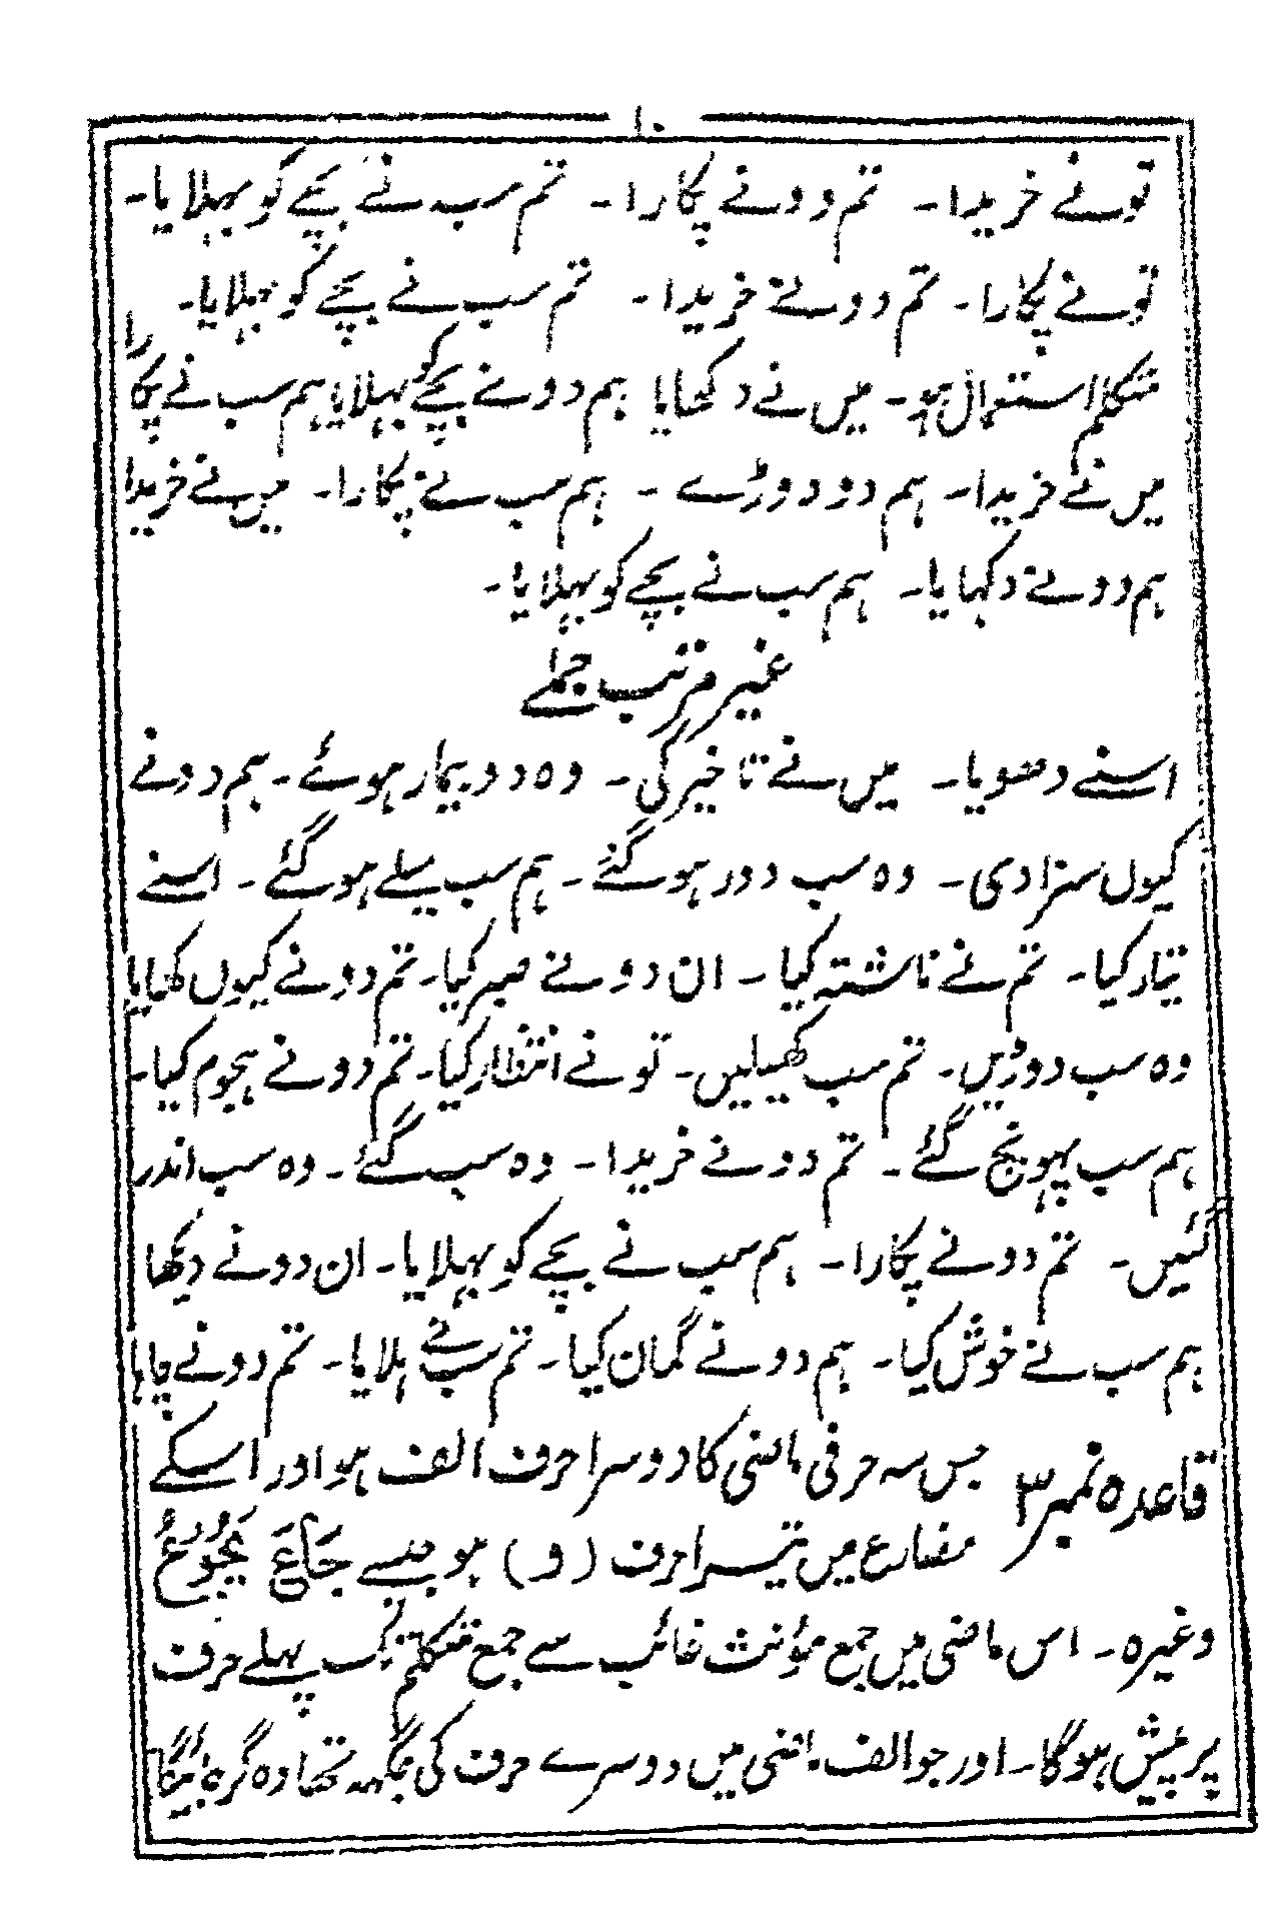 ۱۰
تونے خریدا۔ تم دونے پکارا۔ تم سب نے بچے کو بہلایا۔
تونے پکارا۔ تم دونے خریدا۔ تم سب نے بچے کو بہلایا۔
متکلم استعمال ہو۔ میں نے دکھایا ہم دونے بچے کو بہلایا ہم سب نے پکارا
میں نے خریدا۔ ہم دو دوڑے ۔ ہم سب نے پکارا۔ میں نے خریدا
ہم دونے دکہایا۔ ہم سب نے بچے کو بہلایا۔
غیر مرتب جملے
اسنے دھویا۔ میں نے تاخیر کی۔ وہ دو بیمار ہوئے۔ ہم دونے
کیوں سزا دی۔ وہ سب دور ہوگئے۔ ہم سب پیلے ہوگئے۔ اسنے
تیار کیا۔ تم نے ناشتہ کیا ۔ ان دونے صبر کیا۔ تم دونے کیوں کھایا
وہ سب دوڑیں۔ تم سب کھیلیں۔ تونے انتظار کیا۔ تم دونے ہجوم کیا۔
ہم سب پہونچ گئے۔ تم دونے خریدا۔ وہ سب گئے۔ وہ سب اندر
گئیں۔ تم دونے پکارا۔ ہم سب نے بچے کو بہلایا۔ ان دونے دیکھا
ہم سب نے خوش کیا۔ ہم دونے گمان کیا۔ تم سب نے ہلایا۔ تم دونے چاہا
قاعدہ نمبر ۳ جس سہ حرفی ماضی کا دوسرا حرف الف ہو اور اسکے
مضارع میں تیسرا حرف (و) ہو جیسے جَاعَ یَجُوْعُ
وغیرہ۔ اس ماضی میں جمع مؤنث غائب سے جمع متکلم تک پہلے حرف
پر پیش ہوگا۔ اور جو الف ماضی میں دوسرے حرف کی جگہہ تھا وہ گر جائیگا